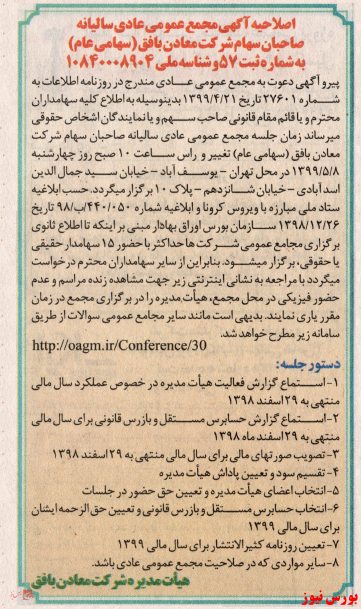 اصلاحیه آگهی مجمع عمومی عادی سالیانه
صاحبان سهام شرکت معادن بافق (سهامی عام)
به شماره ثبت ۵۷ و شناسه ملی ۱۰۸۴۰۰۰۸۹۰۴
پیرو آگهی دعوت به مجمع عمومی عادی مندرج در روزنامه اطلاعات به
شماره ۲۷۶۰۱ تاریخ ۱۳۹۹/۴/۲۱ بدینوسیله به اطلاع کلیه سهامداران
محترم و یا قائم مقام قانونی صاحب سهم و یا نمایندگان اشخاص حقوقی
میرساند زمان جلسه مجمع عمومی عادی سالیانه صاحبان سهام شرکت
معادن بافق (سهامی عام) تغییر و راس ساعت ۱۰ صبح روز چهارشنبه
۱۳۹۹/۵/۸ در محل تهران – یوسف آباد – خیابان سید جمال الدین
اسدآبادی – خیابان شانزدهم – پلاک ۱۰ برگزار میگردد. حسب ابلاغیه
ستاد ملی مبارزه با ویروس کرونا و ابلاغیه شماره ۴۴۰/۰۵۰/ب/۹۸ تاریخ
۱۳۹۸/۱۲/۲۶ سازمان بورس اوراق بهادار مبنی بر اینکه تا اطلاع ثانوی
برگزاری مجامع عمومی شرکت ها حداکثر با حضور ۱۵ سهامدار حقیقی
یا حقوقی، برگزار میشود. بنابراین از سایر سهامداران محترم درخواست
میگردد با مراجعه به نشانی اینترنتی زیر جهت مشاهده زنده مراسم و عدم
حضور فیزیکی در محل مجمع، هیأت مدیره را در برگزاری مجمع در زمان
مقرر یاری نمایند. بدیهی است مانند سایر مجامع عمومی سوالات از طریق
سامانه زیر مطرح خواهد شد.
http://oagm.ir/Conference/30
دستور جلسه:
۱- استماع گزارش فعالیت هیأت مدیره در خصوص عملکرد سال مالی
منتهی به ۲۹ اسفند ۱۳۹۸
۲- استماع گزارش حسابرس مستقل و بازرس قانونی برای سال مالی
منتهی به ۲۹ اسفند ماه ۱۳۹۸
۳- تصویب صورتهای مالی برای سال مالی منتهی به ۲۹ اسفند ۱۳۹۸
۴- تقسیم سود و تعیین پاداش هیأت مدیره
۵- انتخاب اعضای هیأت مدیره و تعیین حق حضور در جلسات
۶- انتخاب حسابرس مستقل و بازرس قانونی و تعیین حق الزحمه ایشان
برای سال مالی ۱۳۹۹
۷- تعیین روزنامه کثیرالانتشار برای سال مالی ۱۳۹۹
۸- سایر مواردی که در صلاحیت مجمع عمومی عادی باشد.
هیأت مدیره شرکت معادن بافق
بورس نیوز